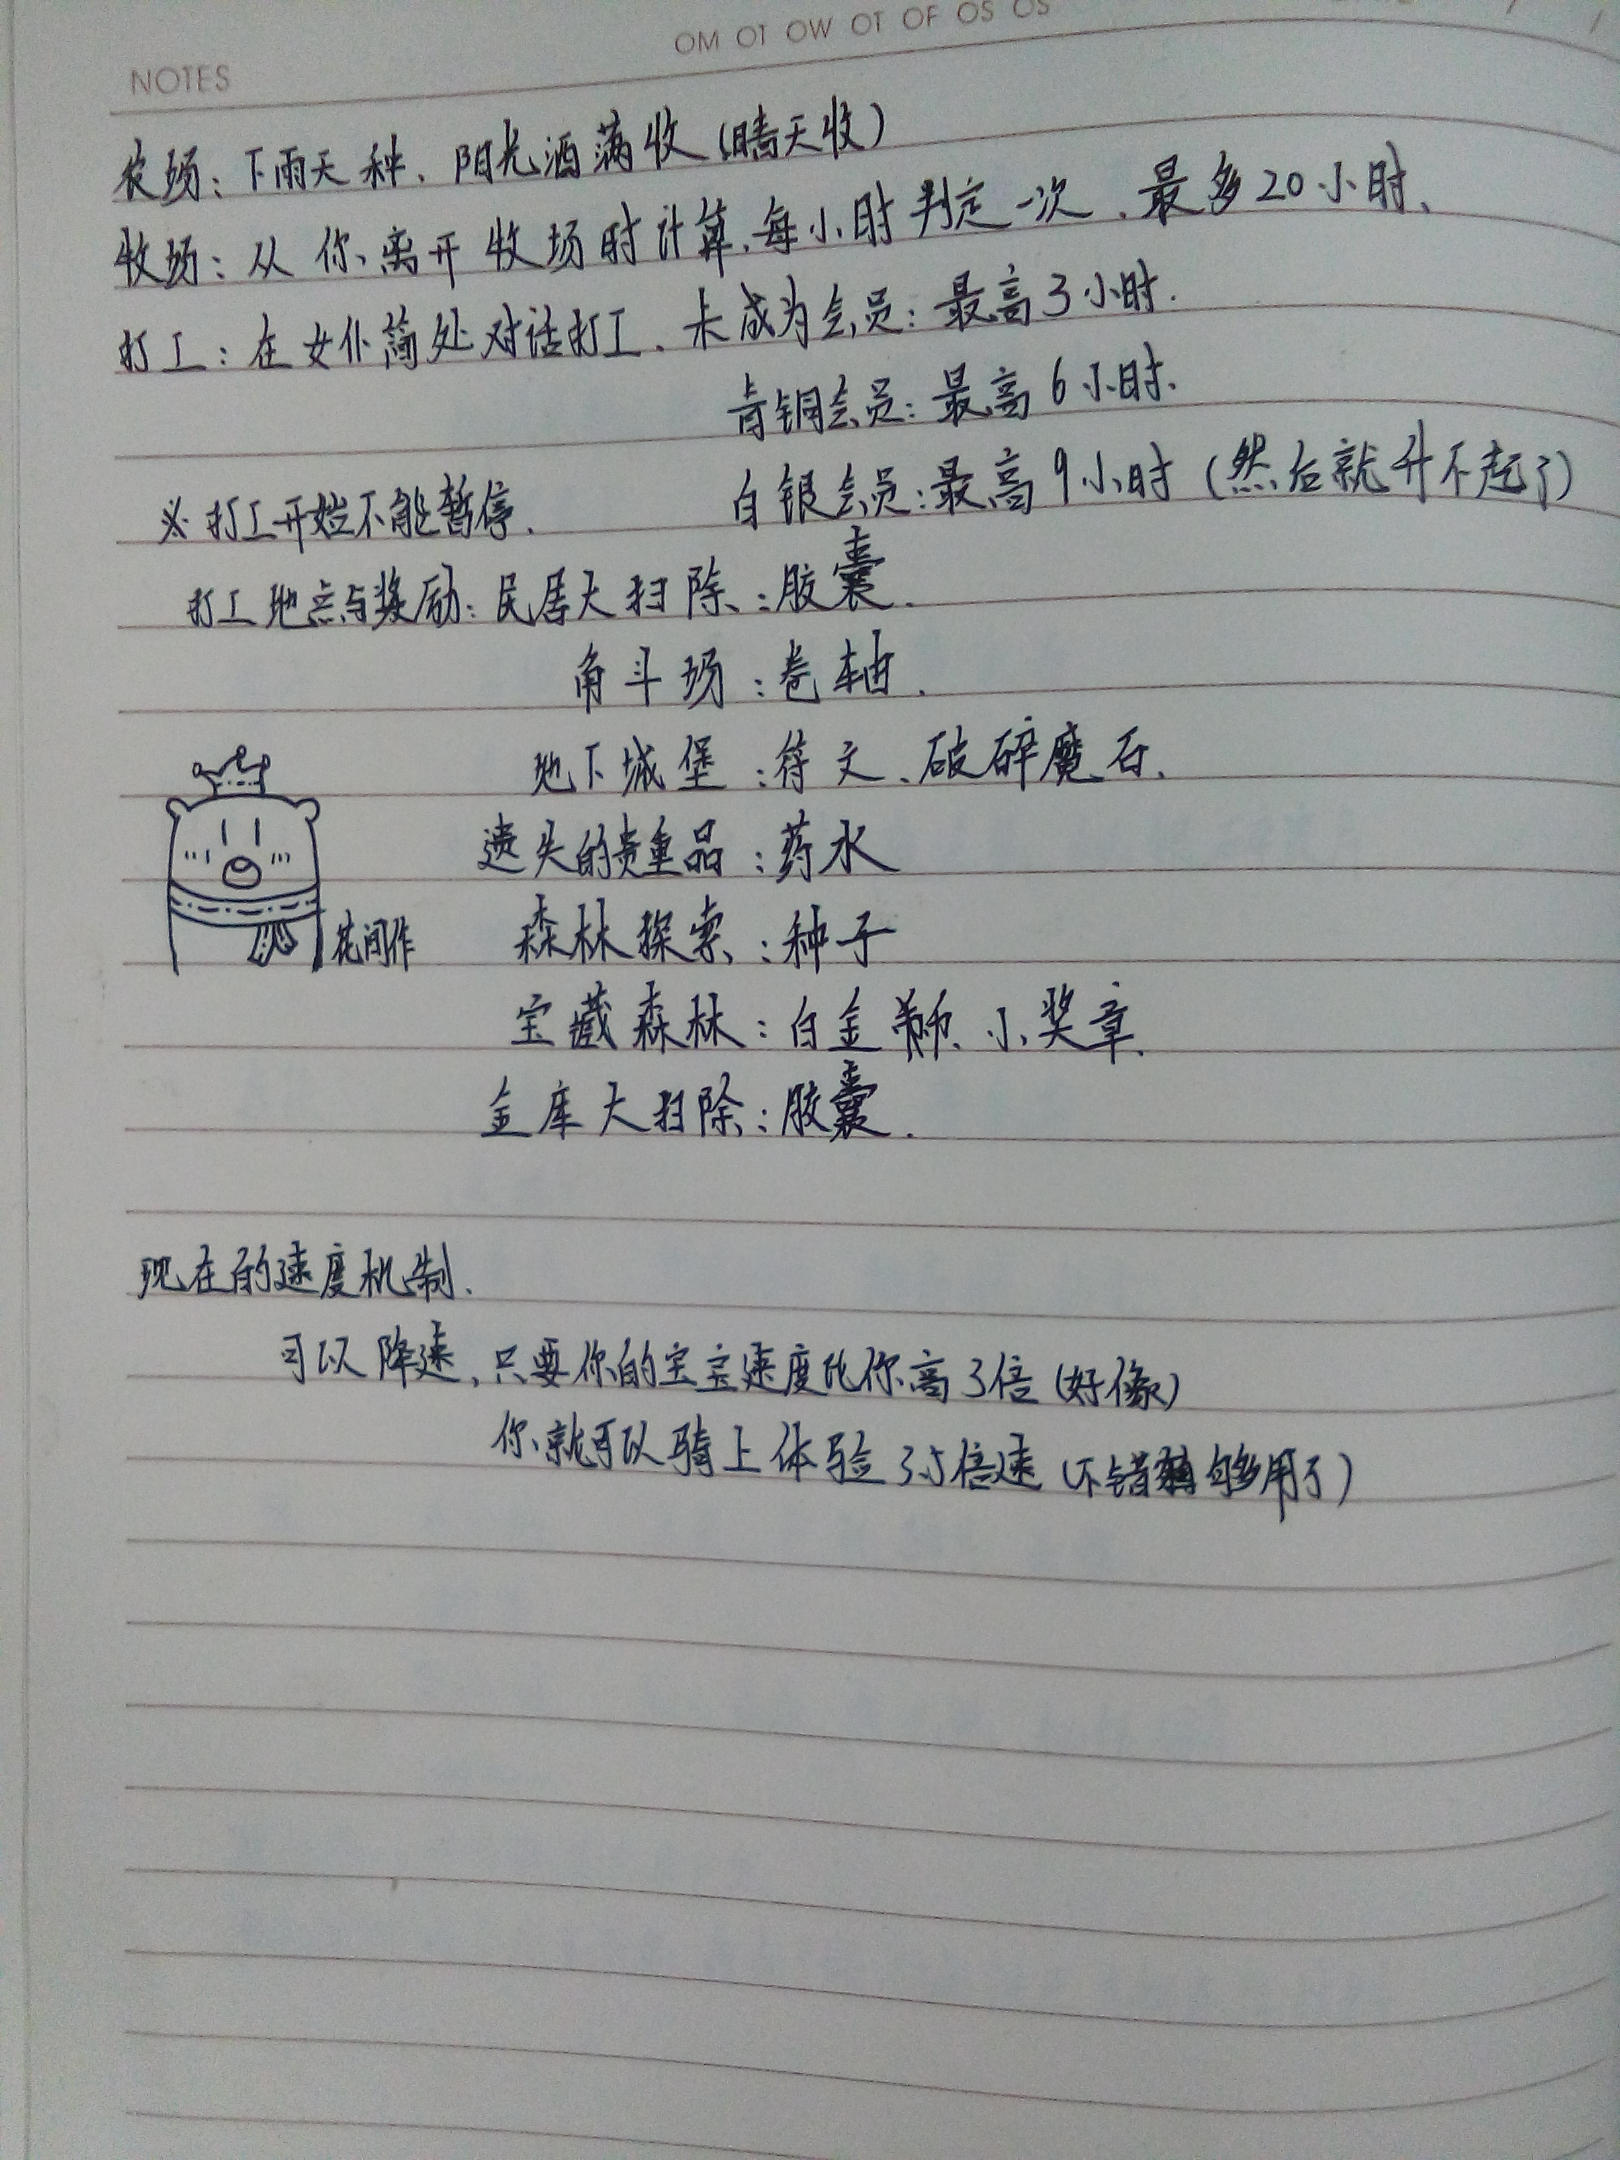 OM OT OW OT OF OS OS
NOTES
农场：下雨天种、阳光洒满收（晴天收）
牧场：从你离开牧场时计算，每小时判定一次、最多20小时、
打工：在女仆简处对话打工、未成为会员：最高3小时.
青铜会员：最高6小时、
白银会员：最高9小时（然后就升不起了）
※打工开始不能暂停.
打工地点与奖励：民居大扫除：胶囊.
角斗场：卷轴.
地下城堡：符文、破碎魔石、
遗失的贵重品：药水
森林探索：种子
花间作
宝藏森林：白金币、小奖章、
金库大扫除：胶囊.
现在的速度机制.
可以降速，只要你的宝宝速度比你高3倍（好像）
你就可以骑上体验3.5倍速（不错 够用了）